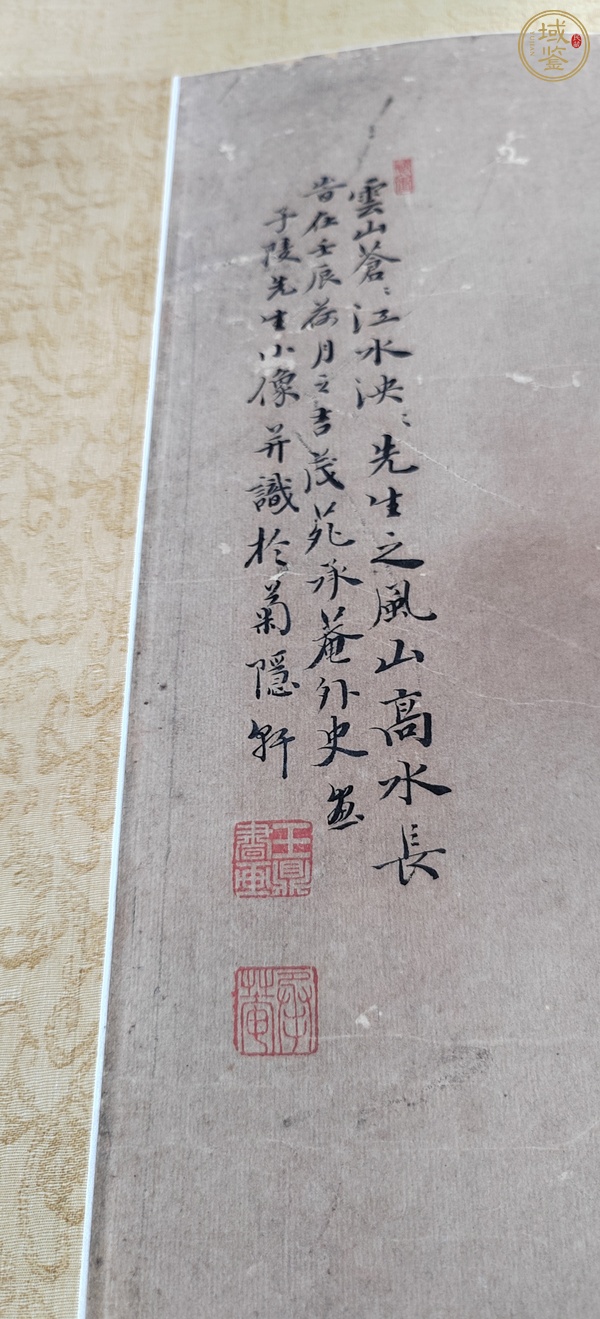 雲山蒼〻江水泱〻先生之風山高水長
旹在壬辰荷月之吉茂苑承菴外史畫
子陵先生小像并識於菊隱軒
王鼎書画
承菴
域鑒